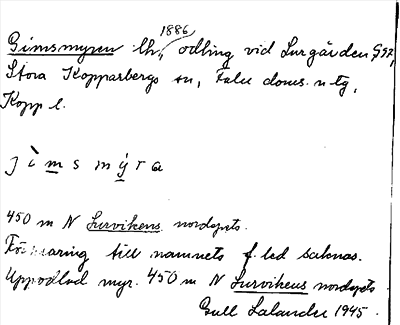 1886
Gimsmyren lh., odling vid Lurgården G 57,
Stora Kopparbergs sn, Falu doms. n tg,
Kopp l.
j ì m s m ý r a
450 m N Lurvikens nordspets.
Förklaring till namnets f. led saknas.
Uppodlad myr. 450 m N Lurvikens nordspets
Gull Lalander 1945.